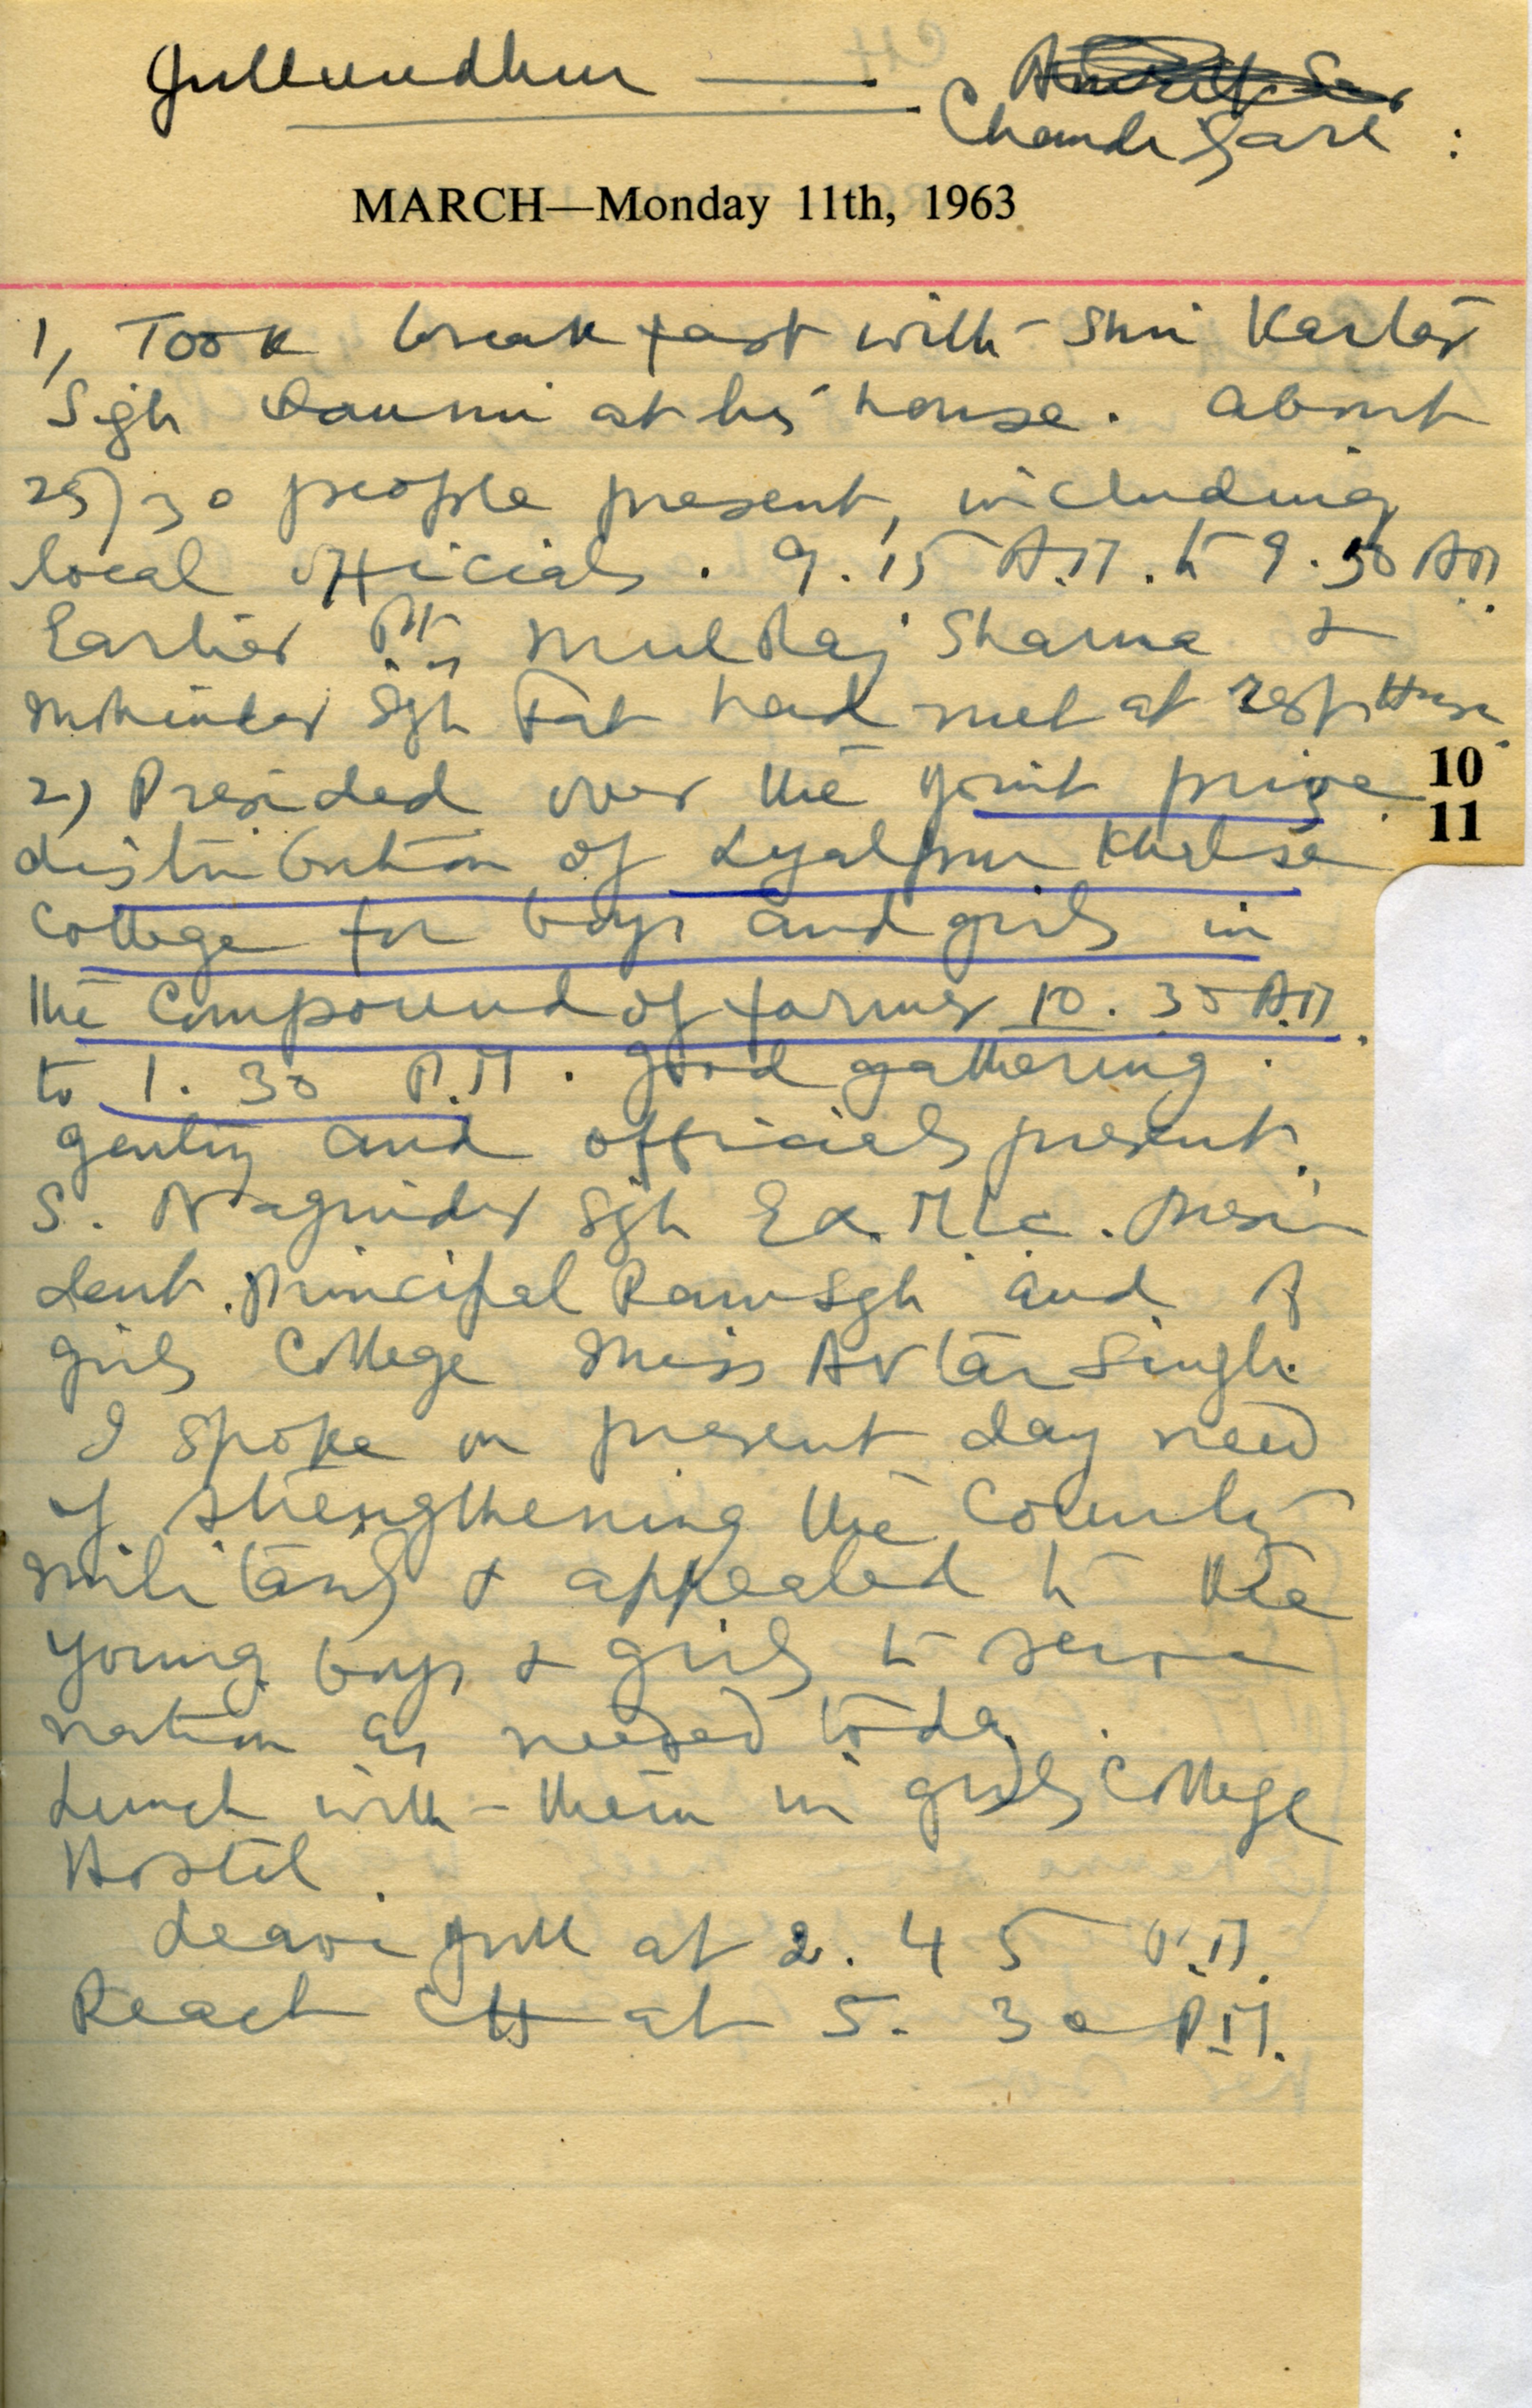 Jullundhur —
Chandigarh :
MARCH—Monday 11th, 1963
1, Took breakfast with Shri Kartar
Sgh at his house. About
25/30 people present, including
local officials. 9.15 A.M. to 9.50 AM.
Earlier Pt. Mul Raj Sharma &
Mohinder Sgh had met at rest House.
2) Presided over the joint prize
10
11
distribution of Lyalpur Khalsa
College for boys and girls in
the compound of former 10.30 A.M.
to 1.30 P.M. Good gathering.
gentry and officials present.
S. Naginder Sgh Ex. M.L.C. Presi
dent. Principal Ram Sgh and of
girls College Miss Avtar Singh.
I spoke on present day need
of strengthening the country
military & appealed to the
young boys & girls to serve
nation as needed today.
Lunch with them in girls College
Hostel.
Leave Jull at 2.45 P.M.
Reach CH at 5.30 P.M.